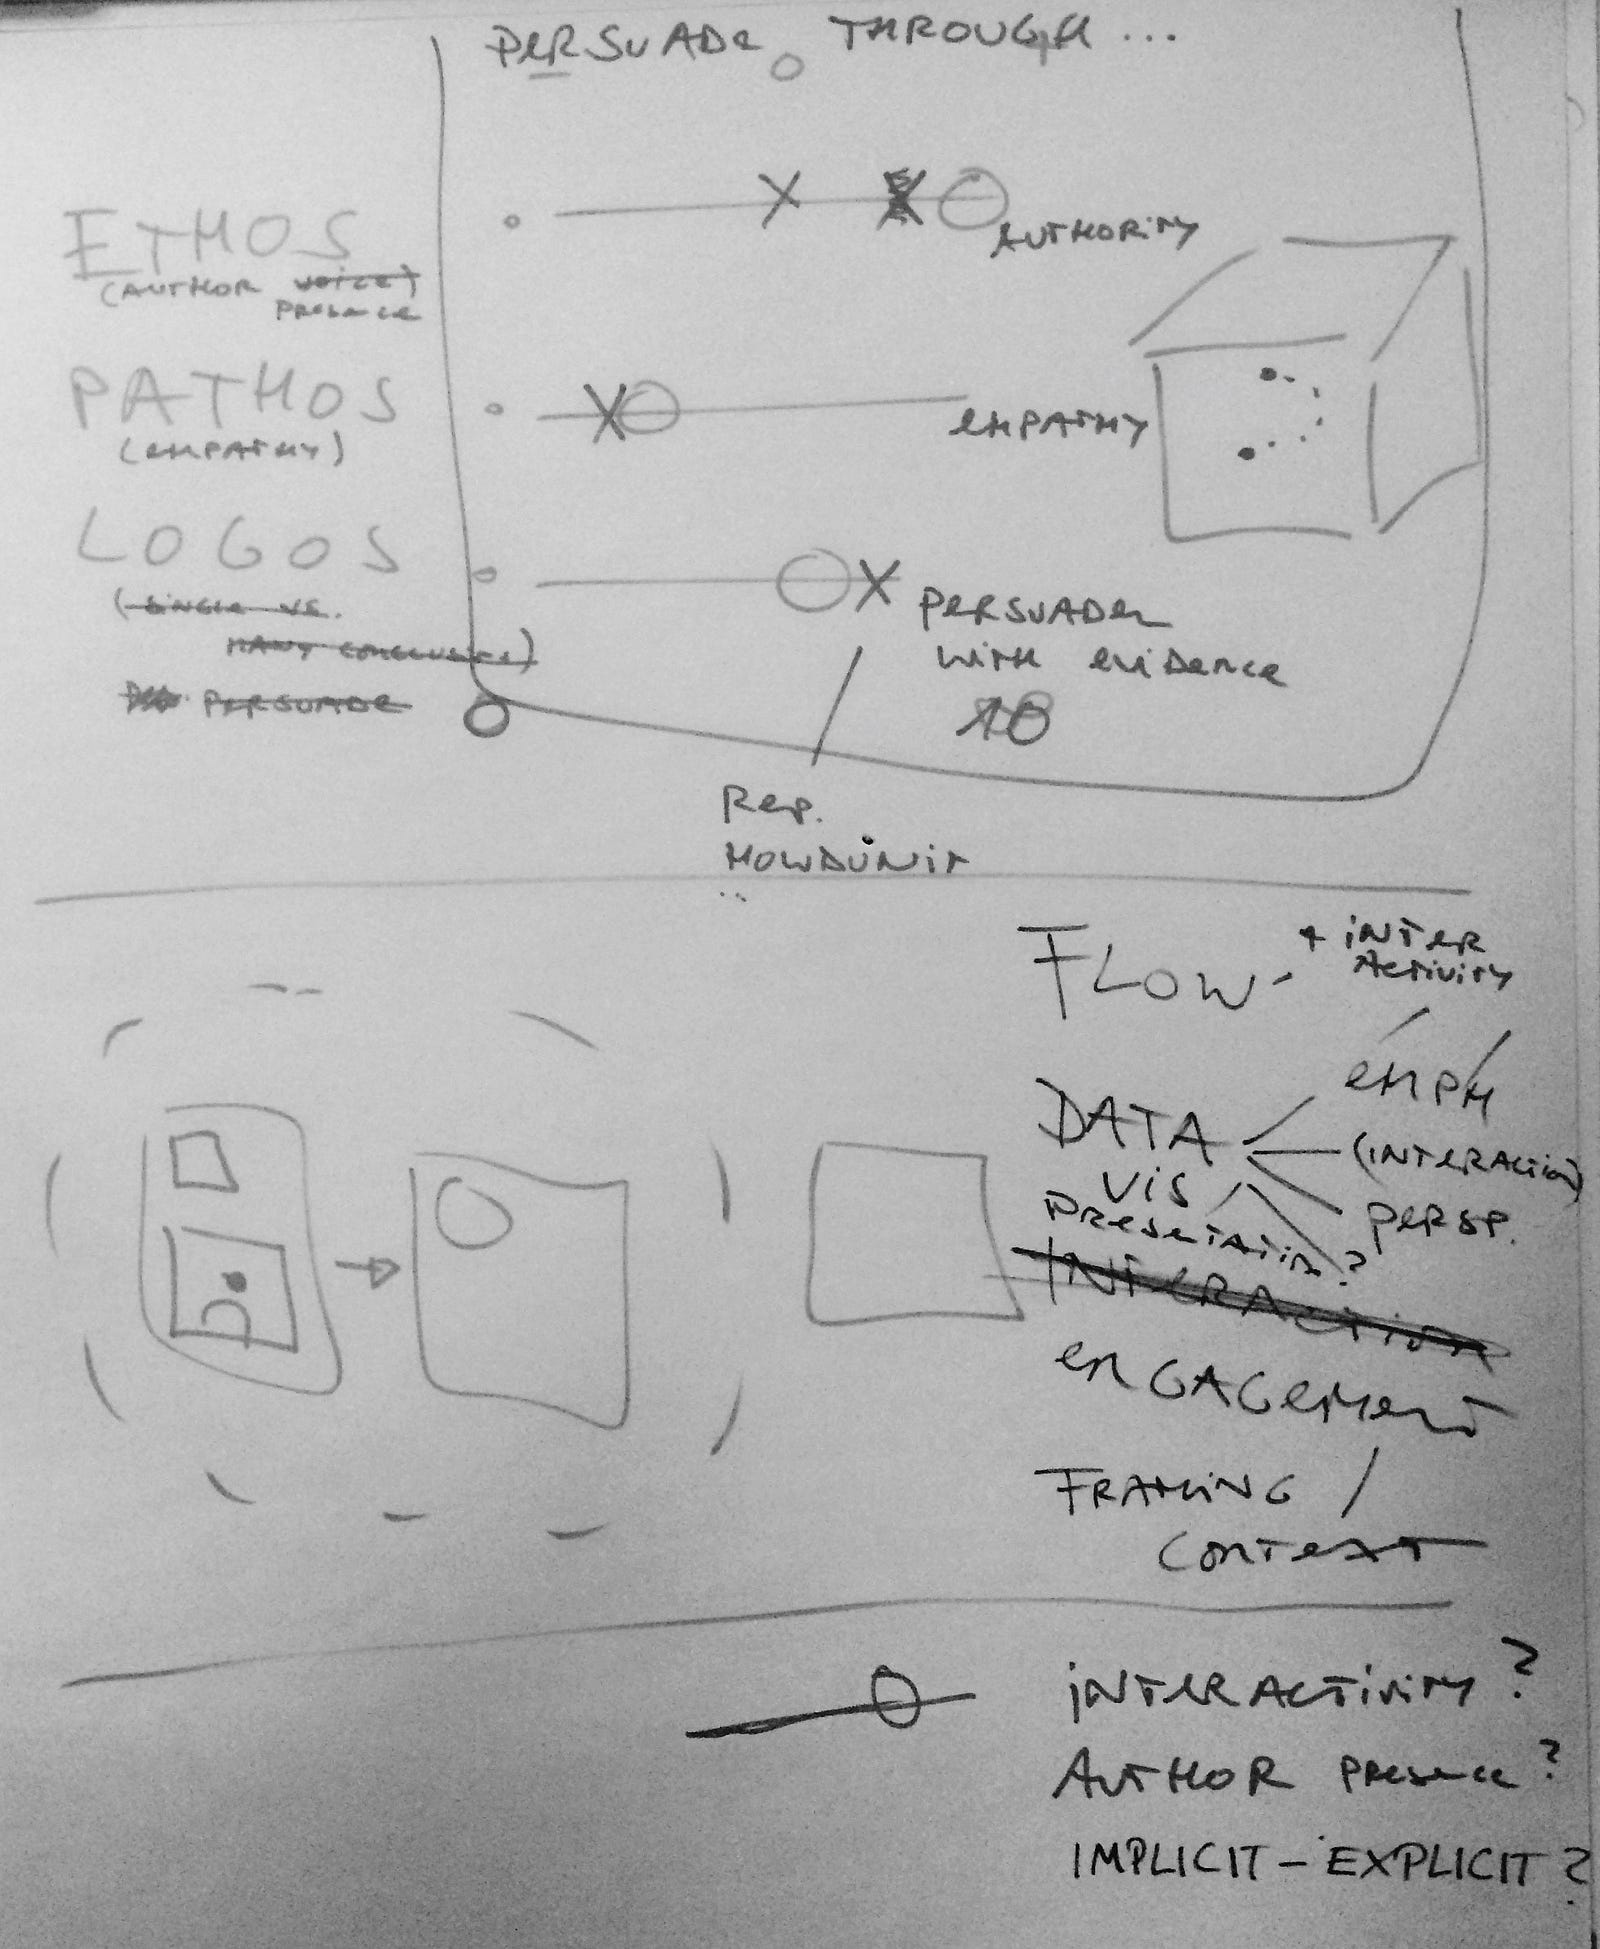 PERSUADE THROUGH ...
ETHOS
(AUTHOR VOICE)
PRESENCE
AUTHORITY
PATHOS
(EMPATHY)
EMPATHY
LOGOS
(SINGLE VS.
MANY CONCLUSIONS)
PERSUADE
PERSUADER
WITH EVIDENCE
Rep.
HOWDUNIT
FLOW
+ INTER
ACTIVITY
EMPH
DATA
VIS
(INTERACTION)
PERSP.
PRESETATIN?
INTERACTION
ENGAGEMENT
FRAMING /
CONTEXT
INTERACTIVITY?
AUTHOR PRESENCE?
IMPLICIT – EXPLICIT?